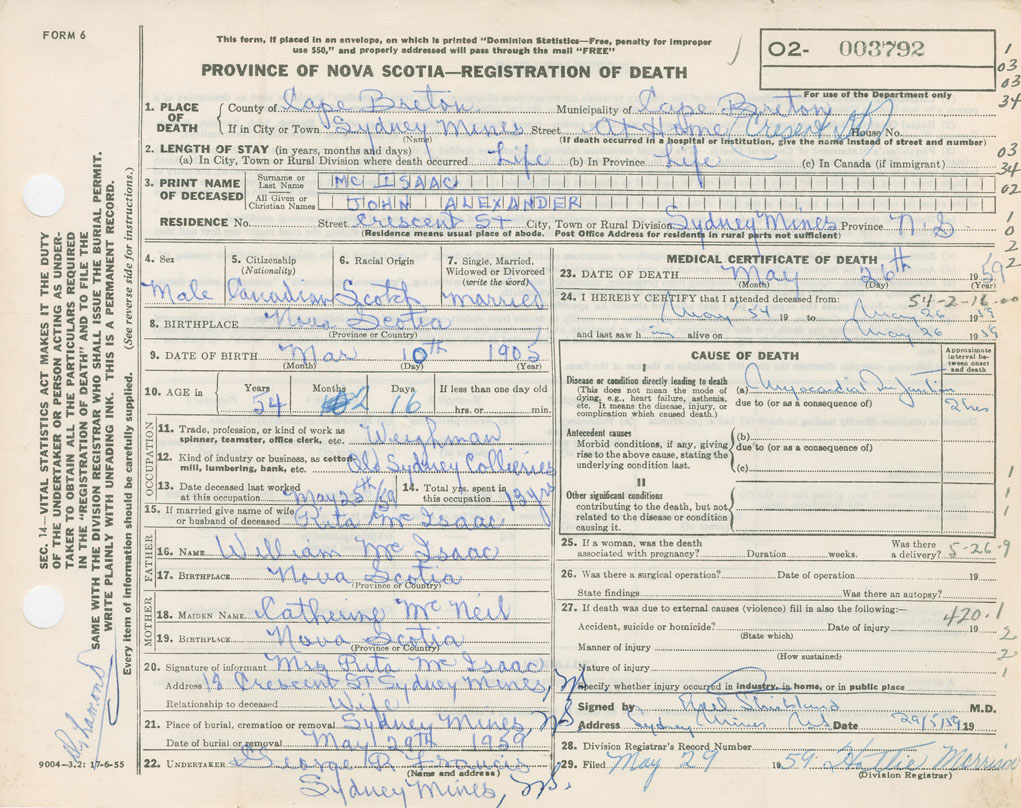 FORM 6
This form, if placed in an envelope, on which is printed "Dominion Statistics—Free, penalty for improper
use $50," and properly addressed will pass through the mail "FREE"
PROVINCE OF NOVA SCOTIA—REGISTRATION OF DEATH
O2- 003792
For use of the Department only
1
03
03
34
1. PLACE OF DEATH
County of Cape Breton Municipality of Cape Breton
If in City or Town Sydney Mines Street At Home Cresent St House No.
(Name) (If death occurred in a hospital or institution, give the name instead of street and number)
2. LENGTH OF STAY (in years, months and days)
(a) In City, Town or Rural Division where death occurred Life (b) In Province Life (c) In Canada (if immigrant)
03
34
02
3. PRINT NAME OF DECEASED
Surname or Last Name MC ISAAC
All Given or Christian Names JOHN ALEXANDER
RESIDENCE No. Street Crescent St City, Town or Rural Division Sydney Mines Province N.S
(Residence means usual place of abode. Post Office Address for residents in rural parts not sufficient)
1
0
2
2
4. Sex 5. Citizenship (Nationality) 6. Racial Origin 7. Single, Married, Widowed or Divorced (write the word)
Male Canadian Scotch Married
8. BIRTHPLACE Nova Scotia
(Province or Country)
9. DATE OF BIRTH Mar 10th 1905
(Month) (Day) (Year)
10. AGE in Years Months Days If less than one day old
54 2 16 hrs. or min.
OCCUPATION
11. Trade, profession, or kind of work as
spinner, teamster, office clerk, etc. Weighman
12. Kind of industry or business, as cotton
mill, lumbering, bank, etc. Old Sydney Collieries
13. Date deceased last worked at this occupation May 25th/59 14. Total yrs. spent in this occupation 13 yrs
15. If married give name of wife
or husband of deceased Rita Mc Isaac
FATHER
16. NAME William Mc Isaac
17. BIRTHPLACE Nova Scotia
(Province or Country)
MOTHER
18. MAIDEN NAME Catherine Mc Neil
19. BIRTHPLACE Nova Scotia
(Province or Country)
20. Signature of informant Mrs Rita Mc Isaac
Address 18 Crescent ST Sydney Mines, NS
Relationship to deceased Wife
21. Place of burial, cremation or removal Sydney Mines, NS
Date of burial or removal May 29th 1959
22. UNDERTAKER George R Francis
(Name and address)
Sydney Mines, NS.
MEDICAL CERTIFICATE OF DEATH
23. DATE OF DEATH May 26th 1959
(Month) (Day) (Year)
24. I HEREBY CERTIFY that I attended deceased from: 54-2-16-00
May '54 19 to May 26 1959
and last saw him alive on May 26 1959
CAUSE OF DEATH
Approximate interval between onset and death
I
Disease or condition directly leading to death
(This does not mean the mode of
dying, e.g., heart failure, asthenia,
etc. It means the disease, injury, or
complication which caused death.)
(a) Myocardial Infarction 2 hrs
due to (or as a consequence of)
Antecedent causes
Morbid conditions, if any, giving
rise to the above cause, stating the
underlying condition last.
(b)
due to (or as a consequence of)
(c)
II
Other significant conditions
contributing to the death, but not
related to the disease or condition
causing it.
1
1
1
25. If a woman, was the death
associated with pregnancy? Duration weeks. Was there a delivery? 5-26-9
26. Was there a surgical operation? Date of operation 19
State findings Was there an autopsy?
27. If death was due to external causes (violence) fill in also the following:— 420.1
Accident, suicide or homicide? Date of injury 19
(State which)
2
Manner of injury
(How sustained)
2
Nature of injury
1
Specify whether injury occurred in industry, in home, or in public place
Signed by M.D.
Address Sydney Mines NS Date 29/5/59 19
28. Division Registrar's Record Number
29. Filed May 29 1959 Hattie Morrison
(Division Registrar)
SEC. 14—VITAL STATISTICS ACT MAKES IT THE DUTY
OF THE UNDERTAKER OR PERSON ACTING AS UNDER-
TAKER TO OBTAIN ALL THE PARTICULARS REQUIRED
IN THE "REGISTRATION OF DEATH" AND TO FILE THE
SAME WITH THE DIVISION REGISTRAR WHO SHALL ISSUE THE BURIAL PERMIT.
WRITE PLAINLY WITH UNFADING INK. THIS IS A PERMANENT RECORD.
Every item of information should be carefully supplied. (See reverse side for instructions.)
9004-3.2: 17-6-55